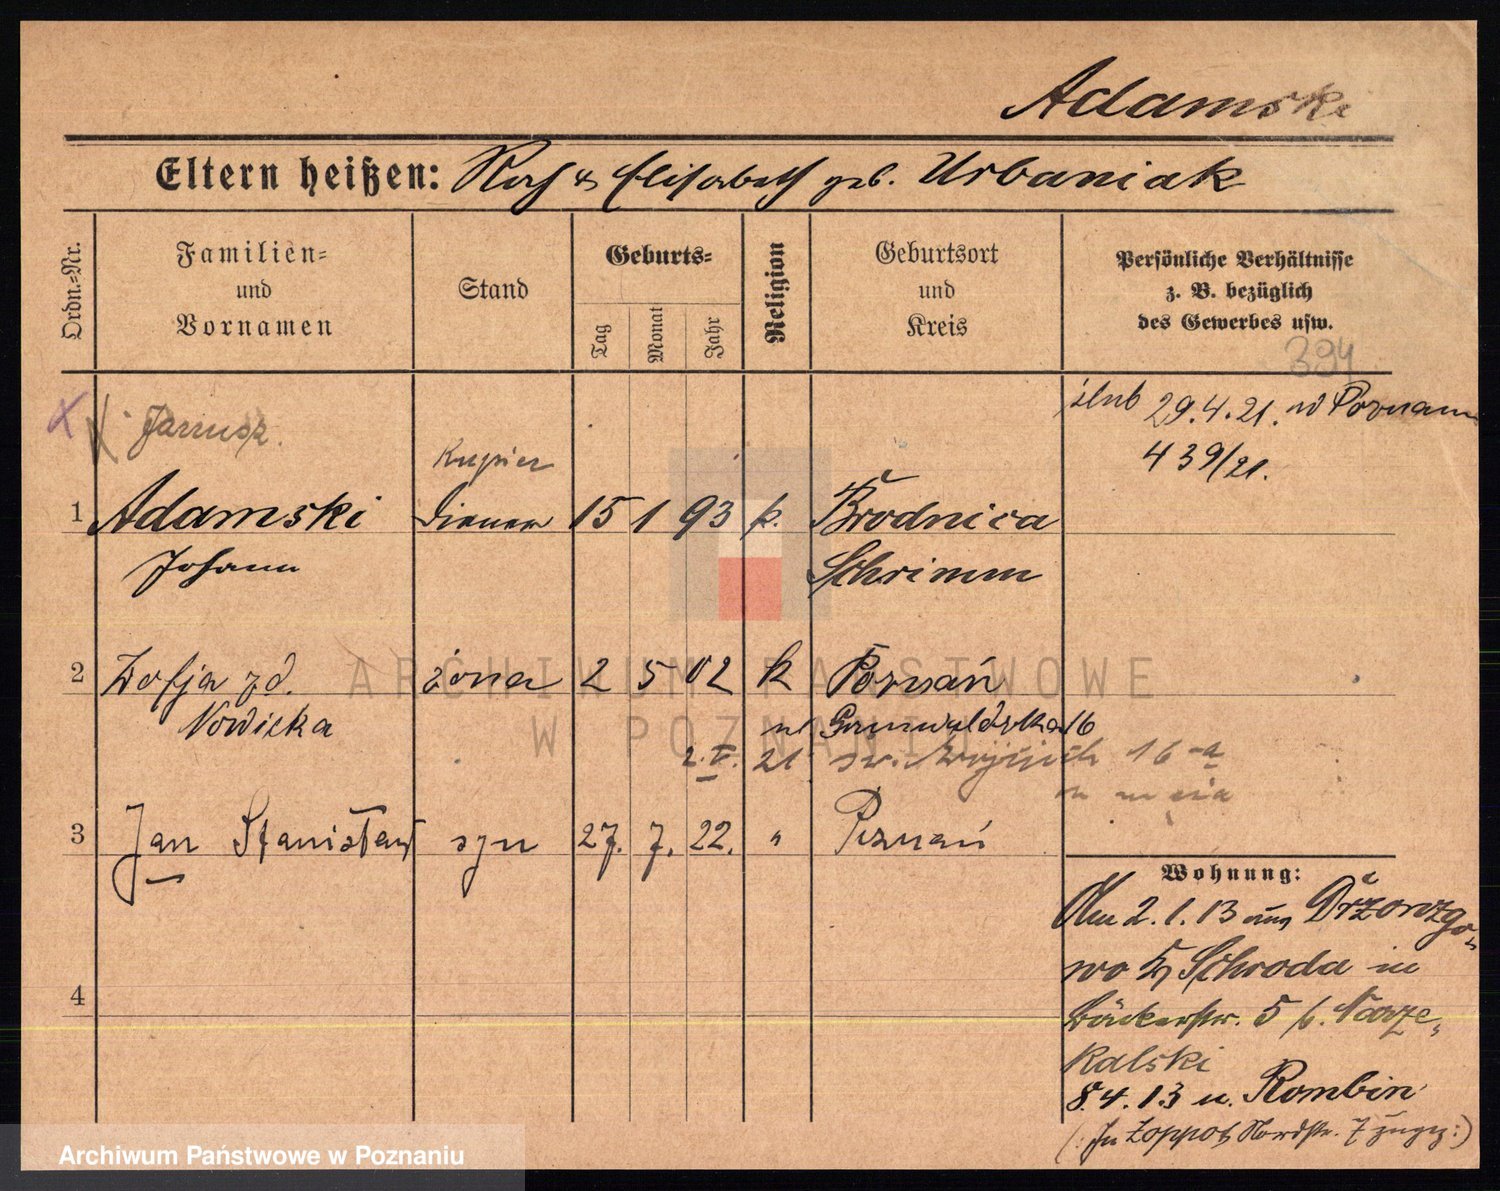 Adamski
Eltern heißen: Roch & Elisabeth geb. Urbaniak
Ordn.=Nr.
Familien=
und
Vornamen
Stand
Geburts=
Tag
Monat
Jahr
Religion
Geburtsort
und
Kreis
Persönliche Verhältnisse
z. B. bezüglich
des Gewerbes usw.
394
ślub 29.4.21. w Poznaniu
439/21.
Janusz.
Kupiec
1 Adamski Diener 15 1 93 k. Brodnica
Johann Schrimm
2 Zofja zd. żona 2 5 02 k Poznań
Nowicka ul Grunwaldzka 16
2.V. 21 św. Wojciech 16-a
3 Jan Stanisław syn 27. 7. 22. " Poznań
Wohnung:
Am 2.1.13 aus
wo Kr Schroda in
Bäckerstr. 5 b.
kalski
8.4.13 n. Rombin
(: In Zoppot Nordstr. 7 zugez:)
4
ARCHIWUM PAŃSTWOWE
W POZNANIU
Archiwum Państwowe w Poznaniu